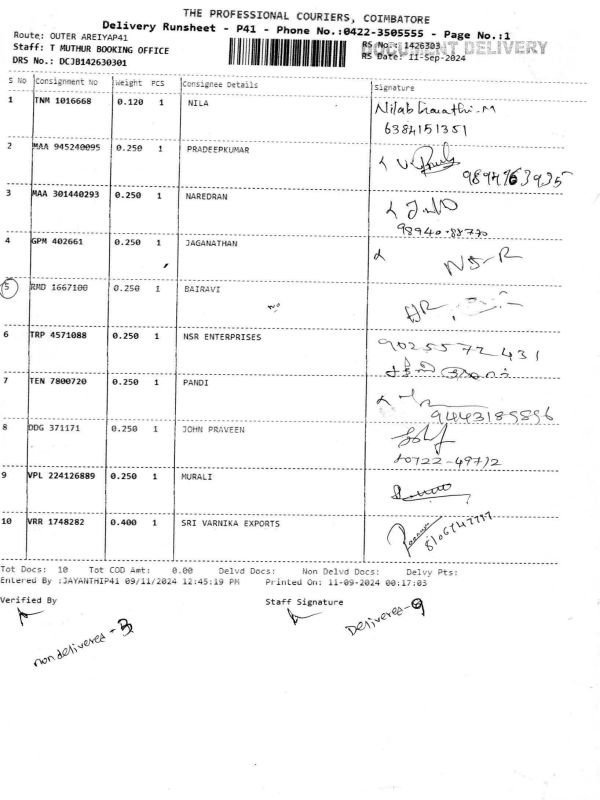 THE PROFESSIONAL COURIERS, COIMBATORE
Delivery Runsheet - P41 - Phone No.:0422-3505555 - Page No.:1
Route: OUTER AREIYAP41
RS No.: 1426303
DOCUMENT DELIVERY
Staff: T MUTHUR BOOKING OFFICE
RS Date: 11-Sep-2024
DRS No.: DCJB142630301
S No Consignment No Weight PCS Consignee Details Signature
1 TNM 1016668 0.120 1 NILA
6384151351
2 MAA 945240095 0.250 1 PRADEEPKUMAR
3 MAA 301440293 0.250 1 NAREDRAN
98940-88770
4 GPM 402661 0.250 1 JAGANATHAN
5 RMD 1667100 0.250 1 BAIRAVI
No
6 TRP 4571088 0.250 1 NSR ENTERPRISES 9025572431
7 TEN 7800720 0.250 1 PANDI
8 DDG 371171 0.250 1 JOHN PRAVEEN
9 VPL 224126889 0.250 1 MURALI
10 VRR 1748282 0.400 1 SRI VARNIKA EXPORTS
Tot Docs: 10 Tot COD Amt: 0.00 Delvd Docs: Non Delvd Docs: Delvy Pts:
Entered By :JAYANTHIP41 09/11/2024 12:45:19 PM Printed On: 11-09-2024 00:17:03
Verified By Staff Signature
nondelivered - Delivered-9